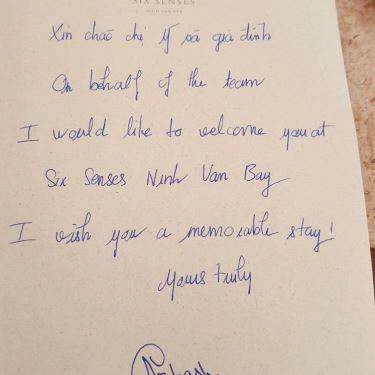 SIX SENSES
Xin chào chị Ý và gia đình
On behalf of the team
I would like to welcome you at
Six Senses Ninh Van Bay
I wish you a memorable stay!
Yours truly